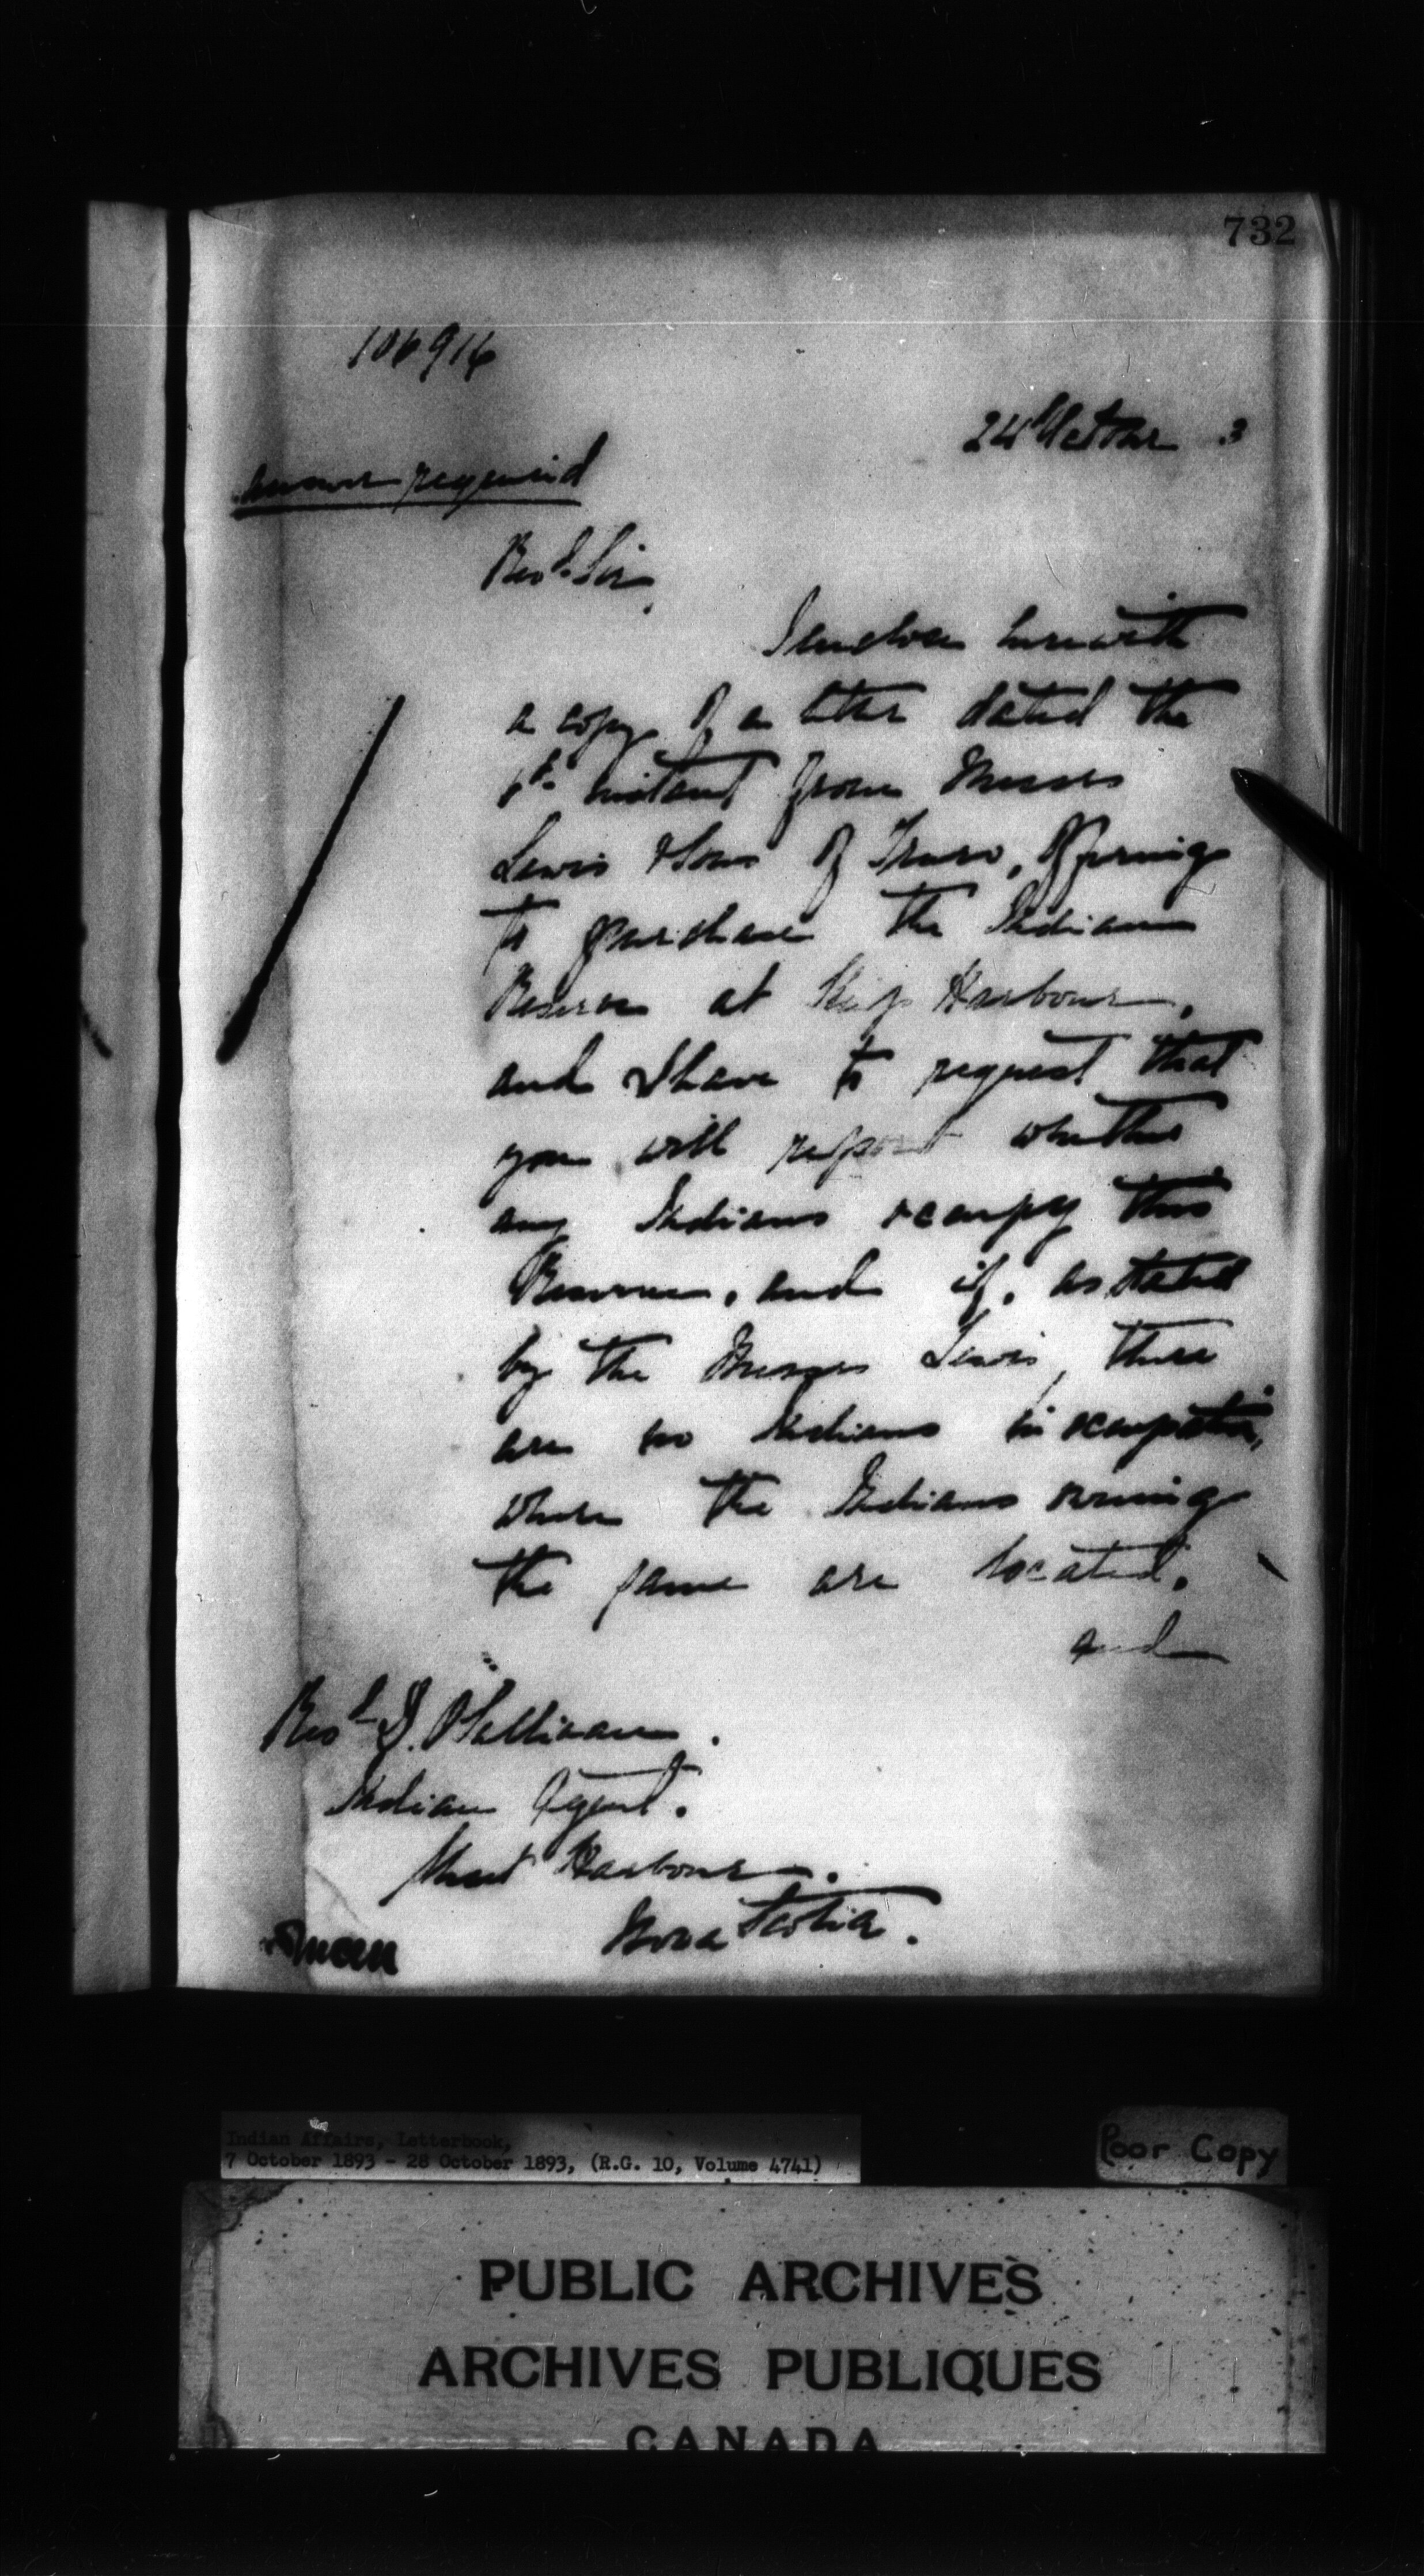 732
106916
24 October 3
Answer required
Revd. Sir,
I enclose herewith
a copy of a letter dated the
instant from Messrs
Lewis & Sons of Truro, offering
to purchase the Indian
Reserve at Ship Harbour,
and I have to request that
you will report whether
any Indians occupy this
Reserve, and if, as stated
by the Messrs Lewis, there
are no Indians in occupation,
where the Indians owning
the same are located,
and
Revd. D. O'Sullivan.
Indian Agent.
Sheet Harbour.
Nova Scotia.
Indian Affairs, Letterbook,
7 October 1893 - 28 October 1893, (R.G. 10, Volume 4741)
Poor Copy
PUBLIC ARCHIVES
ARCHIVES PUBLIQUES
CANADA